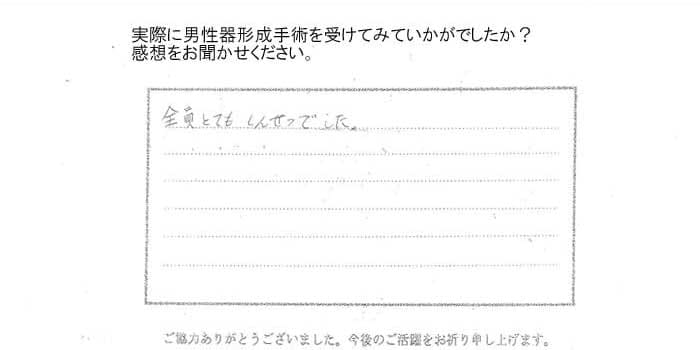 実際に男性器形成手術を受けてみていかがでしたか？
感想をお聞かせください。
全員とても しんせつでした。
ご協力ありがとうございました。今後のご活躍をお祈り申し上げます。